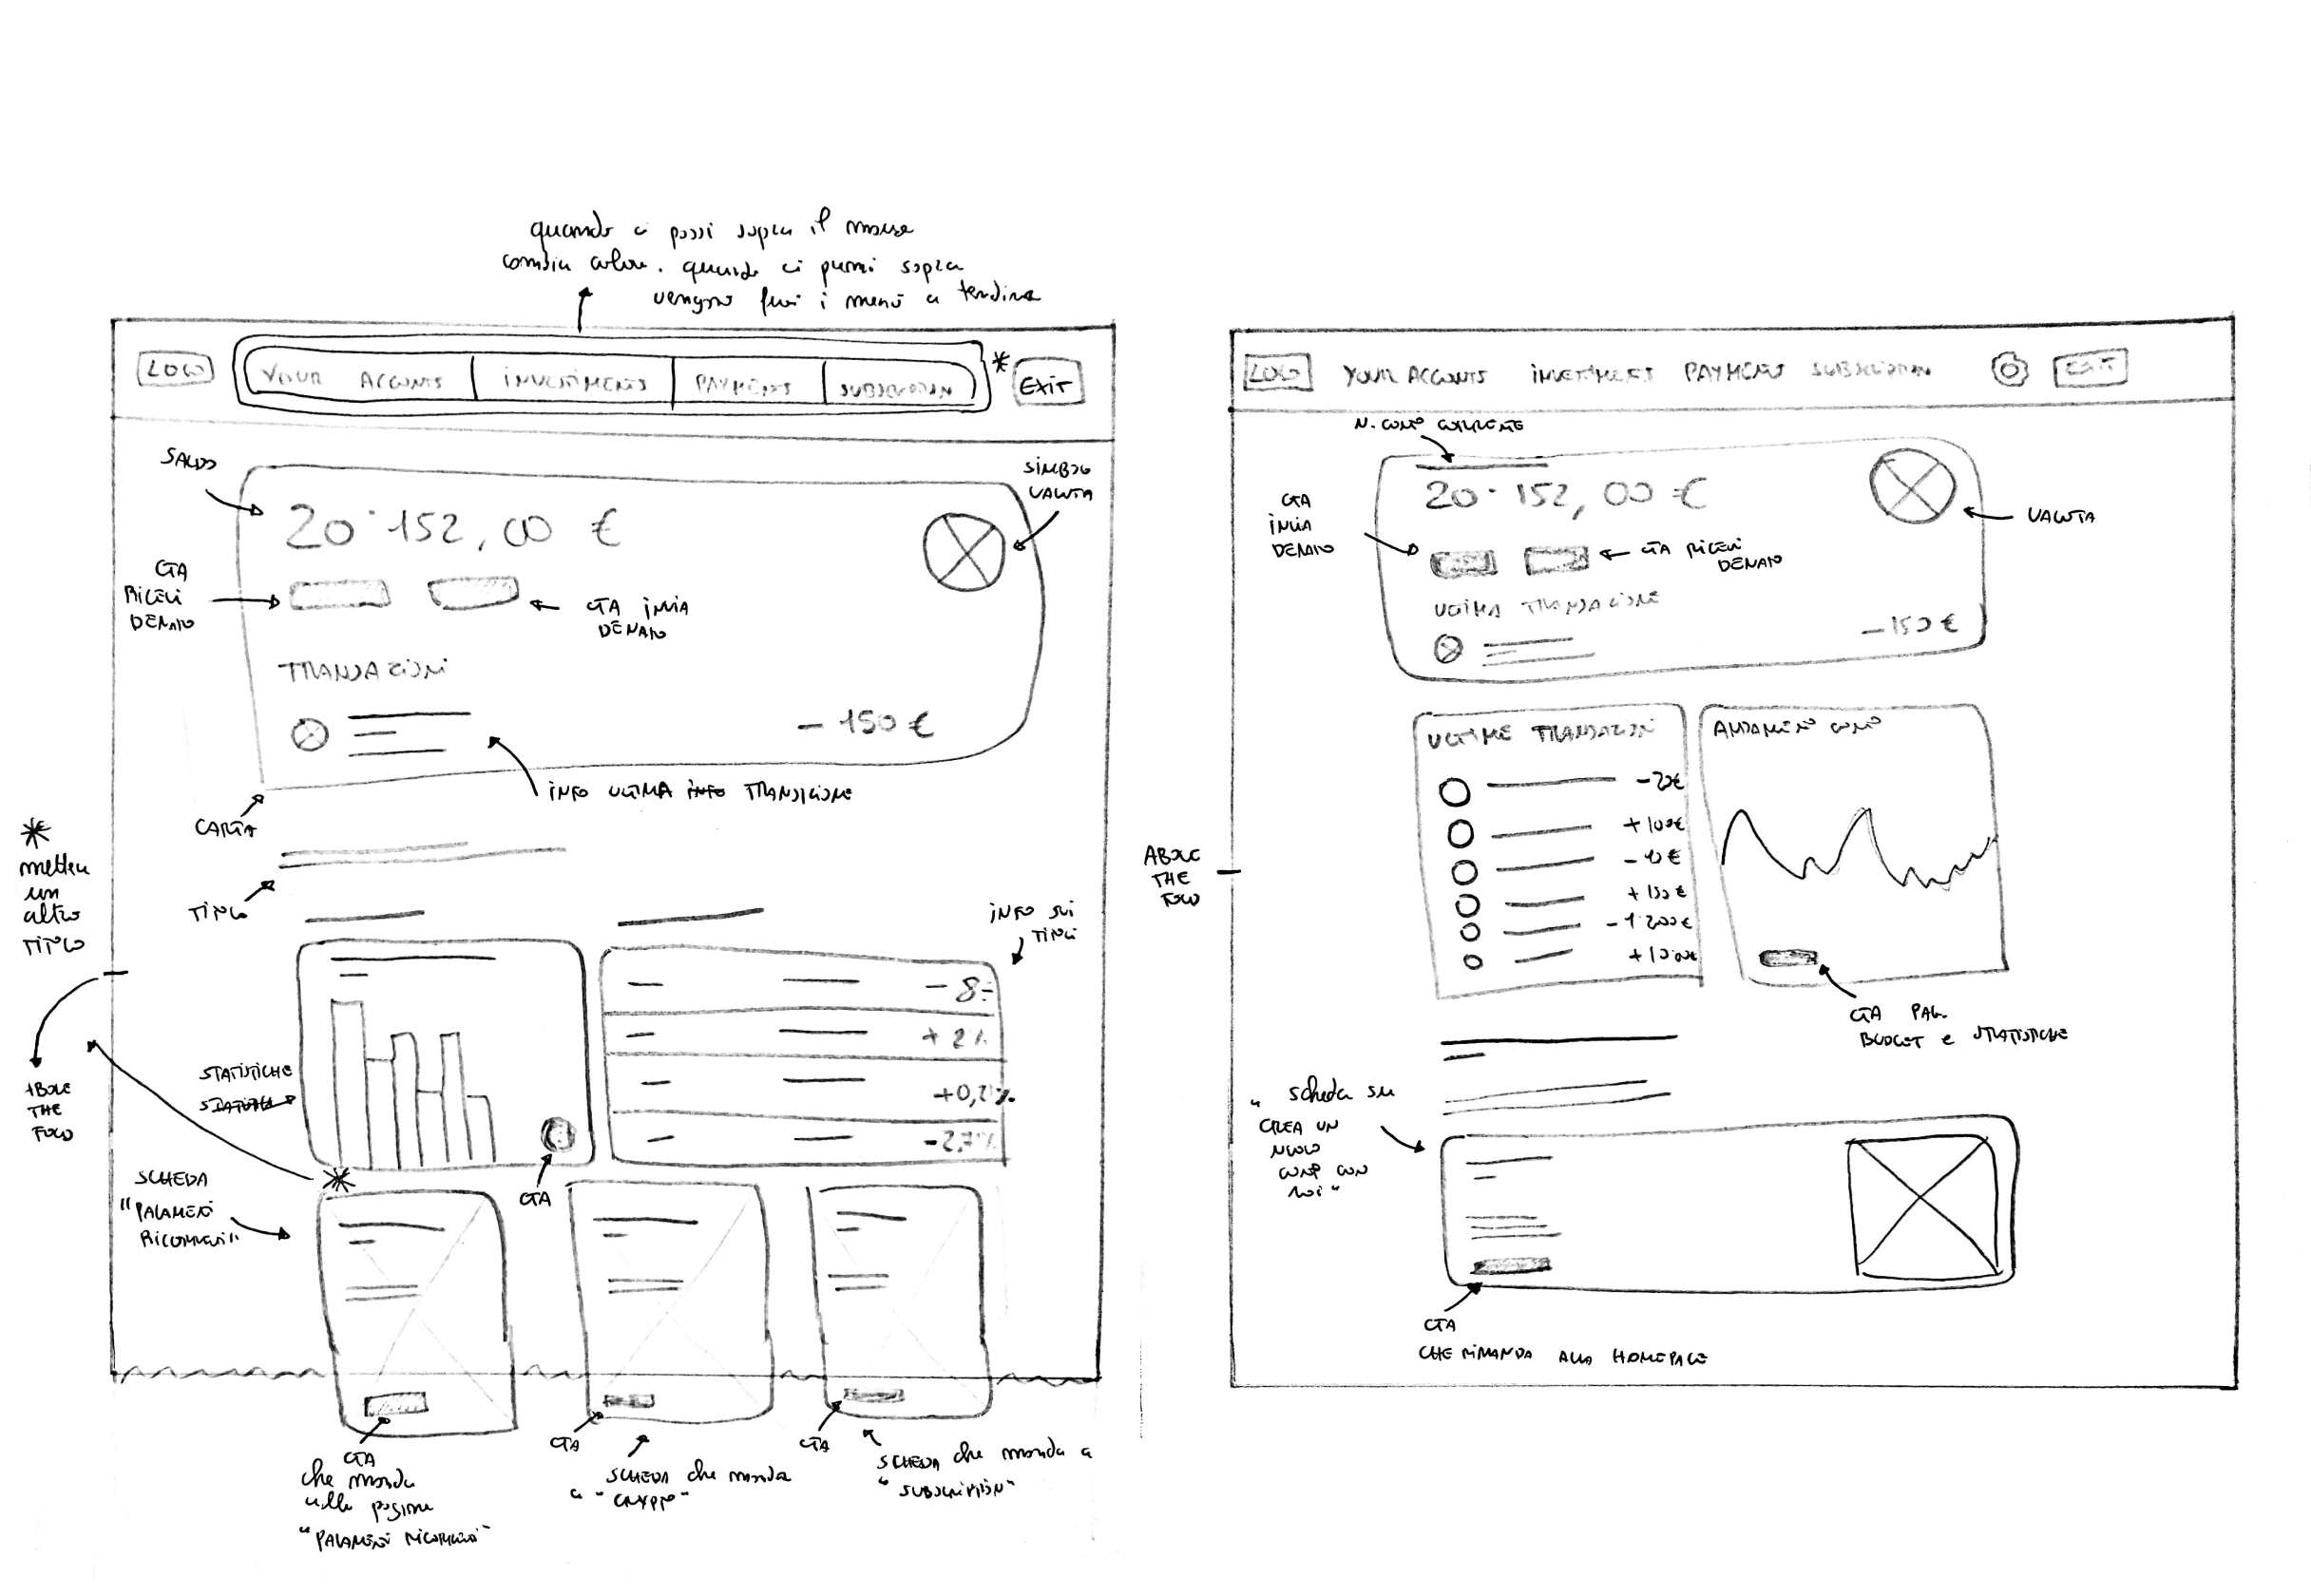 quando ci passi sopra il mouse
cambia colore. quando ci premi sopra
vengono fuori i menù a tendina
LOGO
YOUR ACCONTS
INVESTIMENTS
PAYMENTS
SUBSCRIPTION
*
EXIT
SALDO
20·152,00 €
SIMBOLO
VALUTA
CTA
RICEVI
DENARO
CTA INVIA
DENARO
TRANSAZIONI
- 150 €
INFO ULTIMA INFO TRANSIZIONE
CARTA
*
metter
un
altro
TITOLO
TITOLO
INFO SUI
TITOLI
- 8
+ 2%
+0,21%
-2,7%
STATISTICHE
ABOVE
THE
FOLD
*
SCHEDA
"PAGAMENTI
RICORRENTI"
CTA
CTA
che manda
alla pagina
"PAGAMENTI RICORRENTI"
CTA
SCHEDA che manda
a "CRYPTO"
CTA
SCHEDA che manda a
"SUBSCRIPTION"
LOGO
YOUR ACCONTS
INVESTIMENTS
PAYMENTS
SUBSCRIPTION
EXIT
N. CONTO CORRENTE
20·152,00 €
VALUTA
CTA
INVIA
DENARO
CTA RICEVI
DENARO
ULTIMA TRANSAZIONE
-150 €
ULTIME TRANSAZIONI
-20€
+100€
-10€
+150€
-1200€
+1000€
ANDAMENTO CONTO
ABOVE
THE
FOLD
CTA PAG.
BUDGET e STATISTICHE
" scheda su
CREA UN
NUOVO
CONTO CON
NOI"
CTA
CHE RIMANDA ALLA HOMEPAGE